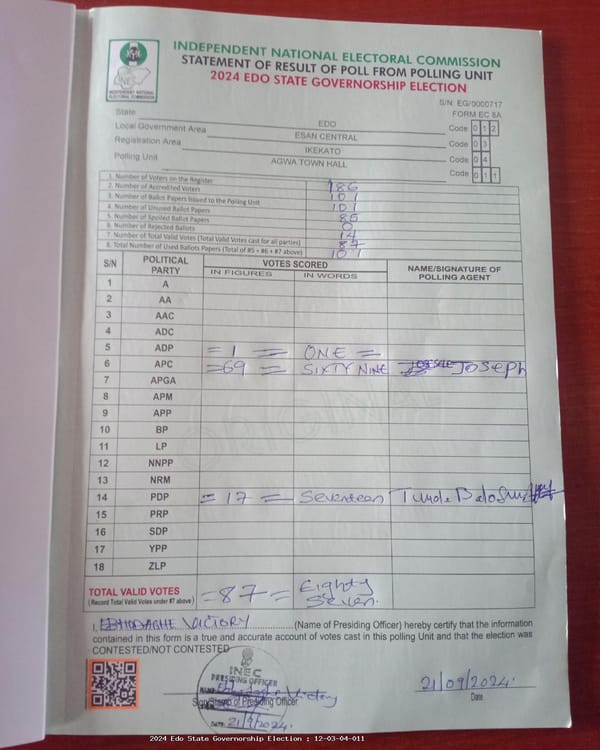 INDEPENDENT NATIONAL ELECTORAL COMMISSION
STATEMENT OF RESULT OF POLL FROM POLLING UNIT
2024 EDO STATE GOVERNORSHIP ELECTION
INEC
INDEPENDENT NATIONAL ELECTORAL COMMISSION
S/N: EG/0000717
FORM EC 8A
State EDO Code 0 1 2
Local Government Area ESAN CENTRAL Code 0 3
Registration Area IKEKATO Code 0 4
Polling Unit AGWA TOWN HALL Code 0 1 1
1. Number of Voters on the Register 186
2. Number of Accredited Voters 101
3. Number of Ballot Papers Issued to the Polling Unit 101
4. Number of Unused Ballot Papers 85
5. Number of Spoiled Ballot Papers 0
6. Number of Rejected Ballots 14
7. Number of Total Valid Votes (Total Valid Votes cast for all parties) 87
8. Total Number of Used Ballots Papers (Total of #5 + #6 + #7 above) 101
S/N POLITICAL PARTY VOTES SCORED NAME/SIGNATURE OF POLLING AGENT
IN FIGURES IN WORDS
1 A
2 AA
3 AAC
4 ADC
5 ADP =1= ONE =
6 APC =69= SIXTY NINE JOSEPH
7 APGA
8 APM
9 APP
10 BP
11 LP
12 NNPP
13 NRM
14 PDP =17= Seventeen
15 PRP
16 SDP
17 YPP
18 ZLP
TOTAL VALID VOTES =87= Eighty Seven.
(Record Total Valid Votes under #7 above)
I, VICTORY (Name of Presiding Officer) hereby certify that the information
contained in this form is a true and accurate account of votes cast in this polling Unit and that the election was
CONTESTED/NOT CONTESTED
INEC
PRESIDING OFFICER
NAME: Victory
Sign/Stamp of Presiding Officer
DATE: 21/9/2024.
21/09/2024.
Date
2024 Edo State Governorship Election : 12-03-04-011